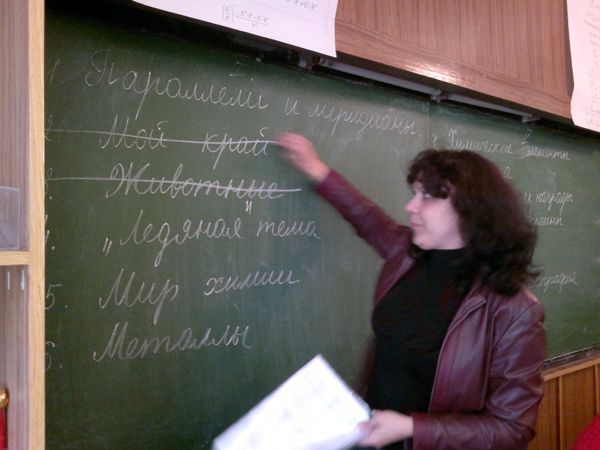 1. Параллели и меридианы.
2. Мой край
3. Животные
4. "Ледяная тема"
5. Мир химии
6. Металлы
1. Химические элементы
а
и награды